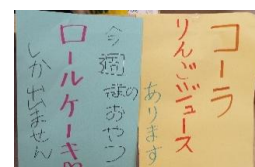 コーラ
りんごジュース
あります
今週のおやつ
ロールケーキ
しか出ません